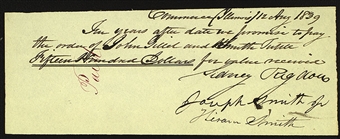 Commerce (Illinois) 12 Aug 1839
Ten years after date we promise to pay
the order of John Gillet and Smith Tuttle
Fifteen Hundred Dollars for value received
Sidney Rigdon
Joseph Smith Jr
Hiram Smith